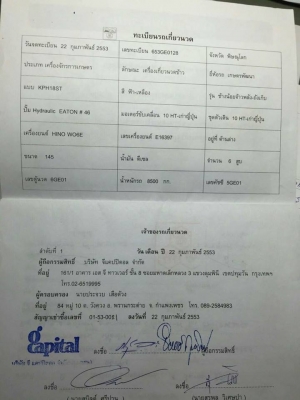 ทะเบียนรถเกี่ยวนวด
วันจดทะเบียน 22 กุมภาพันธ์ 2553 เลขทะเบียน 653GE0128 จังหวัด พิษณุโลก
ประเภท เครื่องจักรการเกษตร ลักษณะ เครื่องเกี่ยวนวดข้าว ยี่ห้อรถ เกษตรพัฒนา
แบบ KPH18ST สี ฟ้า-เหลือง รุ่น
ปั้ม Hydraulic EATON # 46 มอเตอร์ขับเคลื่อน 10 HT-เก่าญี่ปุ่น ชุดตัวเดิน 10 HT-เก่าญี่ปุ่น
เครื่องยนต์ HINO WO6E เลขเครื่องยนต์ E16397 อยู่ที่ ด้านล่าง
ขนาด 145 น้ำมัน ดีเซล จำนวน 6 สูบ
เลขตู้นวด 6GE01 น้ำหนักรถ 8500 กก. เลขคัทซี 5GE01
เจ้าของรถเกี่ยวนวด
ลำดับที่ 1 วัน เดือน ปี 22 กุมภาพันธ์ 2553
ผู้ถือกรรมสิทธิ์ บริษัท จีแคปปิตอล จำกัด
ที่อยู่ 161/1 อาคาร เอส จี ทาวเวอร์ ชั้น 8 ซอยมหาดเล็กหลวง 3 แขวงลุมพินี เขตปทุมวัน กรุงเทพฯ
โทร.02-6519995
ผู้ครอบครอง นายประจวบ
ที่อยู่ 94 หมู่ 10 ต. วังควง อ. พรานกระต่าย จ. กำแพงเพชร โทร. 089-2584983
สัญญาเช่าซื้อเลขที่ 01-53-0081 ลงวันที่ 22 กุมภาพันธ์ 2553
capital
ลงชื่อ ผู้ถือกรรมสิทธิ์
ลงชื่อ ลงชื่อ